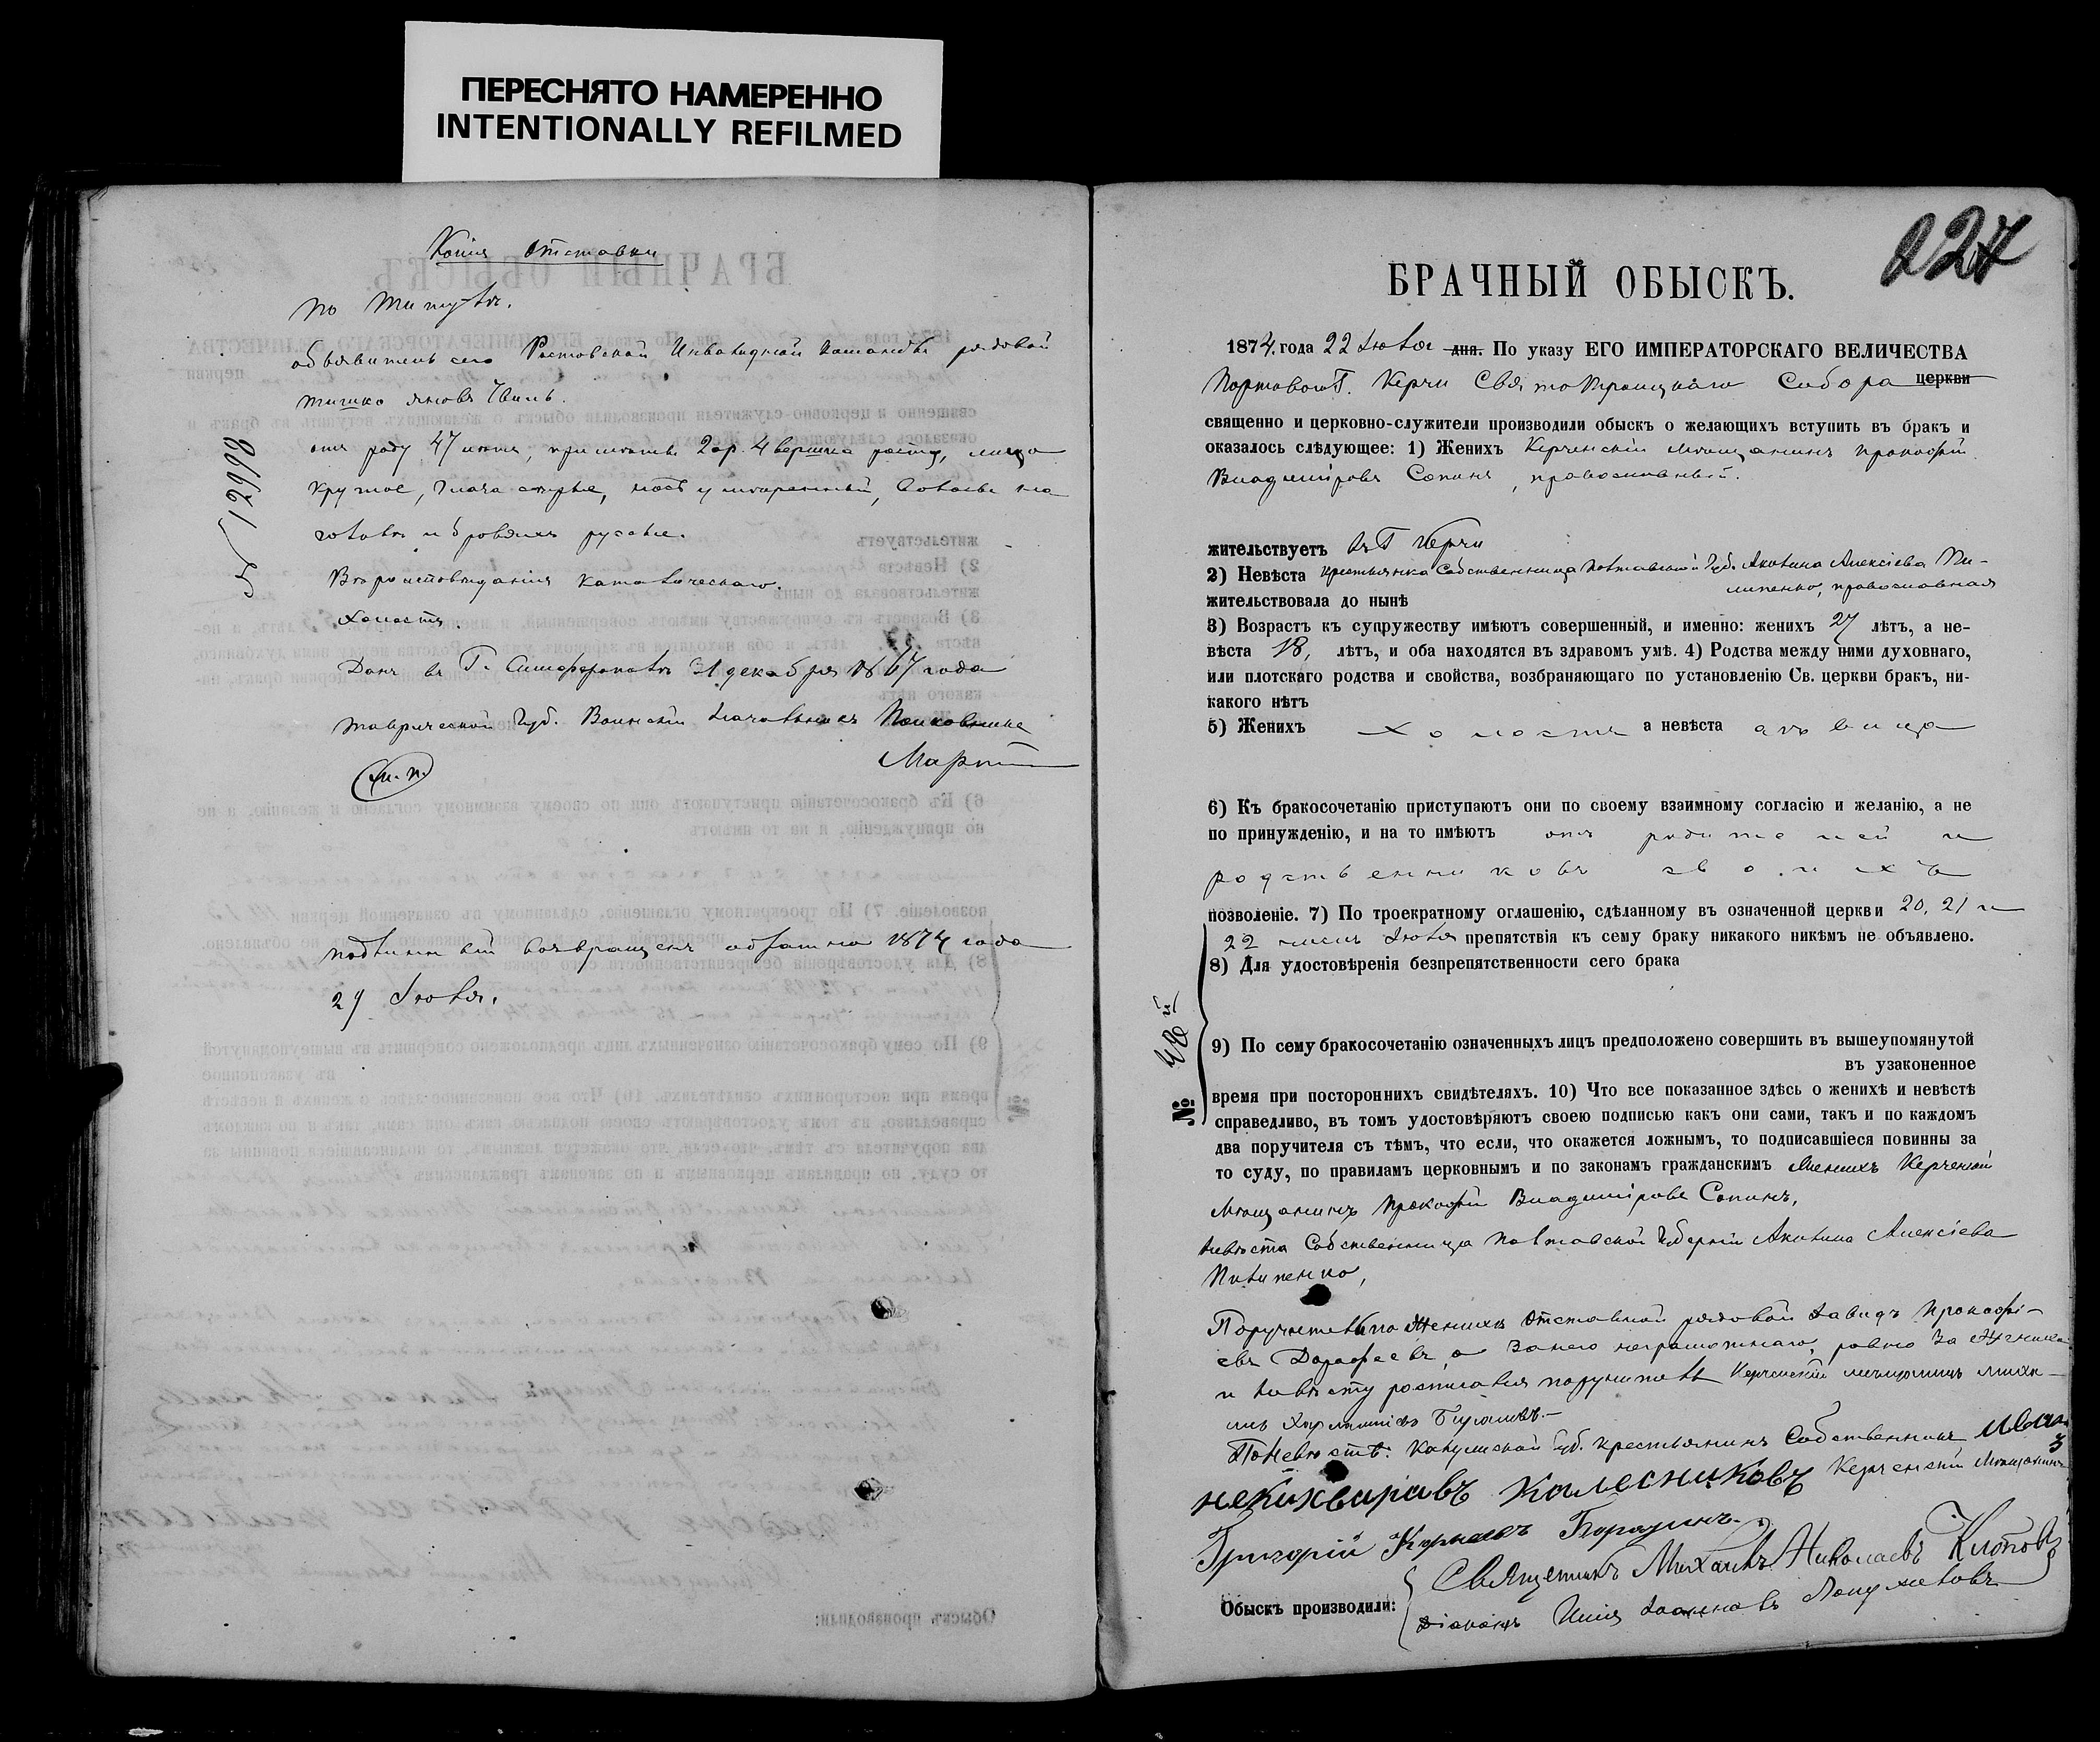 ПЕРЕСНЯТО НАМЕРЕННО
INTENTIONALLY REFILMED
Копія отставки
по титулѣ.
объявитель сего Ростовской Инвалидной команды рядовой
отъ роду 47 лѣтъ, примѣты 2 ар. 4 вершка росту, лицо
круглое, глаза сѣрые, носъ умѣренный, волосы на
головѣ и бровяхъ русые.
Вѣроисповѣданія католическаго.
холостъ.
Данъ въ Г. Симферополѣ 31 декабря 1867 года
Таврической Губ. Воинскій Начальникъ Полковникъ
(м.п.)
№ 12998
подлинный возвращенъ обратно 1874 года
29 Іюля.
227
БРАЧНЫЙ ОБЫСКЪ.
1874 года 22 Іюля дня. По указу ЕГО ИМПЕРАТОРСКАГО ВЕЛИЧЕСТВА
Портоваго Г. Керчи Святотроицкаго Собора церкви
священно и церковно-служители производили обыскъ о желающихъ вступить въ бракъ и
оказалось слѣдующее: 1) Женихъ Керченскій мѣщанинъ Прокофій
Владиміровъ Сопинъ, православный.
жительствуетъ въ Г. Керчи
2) Невѣста крестьянка Собственница Полтавской Губ. Акилина Алексіева Пи-
липенко, православная
жительствовала до нынѣ
3) Возрастъ къ супружеству имѣютъ совершенный, и именно: женихъ 27 лѣтъ, а не-
вѣста 18, лѣтъ, и оба находятся въ здравомъ умѣ. 4) Родства между ними духовнаго,
или плотскаго родства и свойства, возбраняющаго по установленію Св. церкви бракъ, ни-
какого нѣтъ
5) Женихъ холостъ а невѣста дѣвица
6) Къ бракосочетанію приступаютъ они по своему взаимному согласію и желанію, а не
по принужденію, и на то имѣютъ отъ родителей и
родственниковъ своихъ
позволеніе. 7) По троекратному оглашенію, сдѣланному въ означенной церкви 20, 21 и
22 чиселъ Іюля препятствія къ сему браку никакого никѣмъ не объявлено.
8) Для удостовѣренія безпрепятственности сего брака
9) По сему бракосочетанію означенныхъ лицъ предположено совершить въ вышеупомянутой
въ узаконенное
время при постороннихъ свидѣтеляхъ. 10) Что все показанное здѣсь о женихѣ и невѣстѣ
справедливо, въ томъ удостовѣряютъ своею подписью какъ они сами, такъ и по каждомъ
два поручителя съ тѣмъ, что если, что окажется ложнымъ, то подписавшіеся повинны за
то суду, по правиламъ церковнымъ и по законамъ гражданскимъ Женихъ Керченскій
Мѣщанинъ Прокофій Владиміровъ Сопинъ,
Невѣста Собственница Полтавской Губерніи Акилина Алексіева
Пилипенко,
Поручители по Женихѣ Отставной рядовой Давидъ Прокофі-
евъ Дорофеевъ, а за него неграмотнаго, ровно за Жениха
и невѣсту росписался поручитель Керченскій мѣщанинъ Миха-
По Невѣстѣ: Калужской Губ. Крестьянинъ Собственникъ Иванъ
Калесниковъ Керченскій Мѣщанинъ
Григорій
Священникъ Михаилъ Николаевъ
Обыскъ производили:
Діаконъ Илія
№